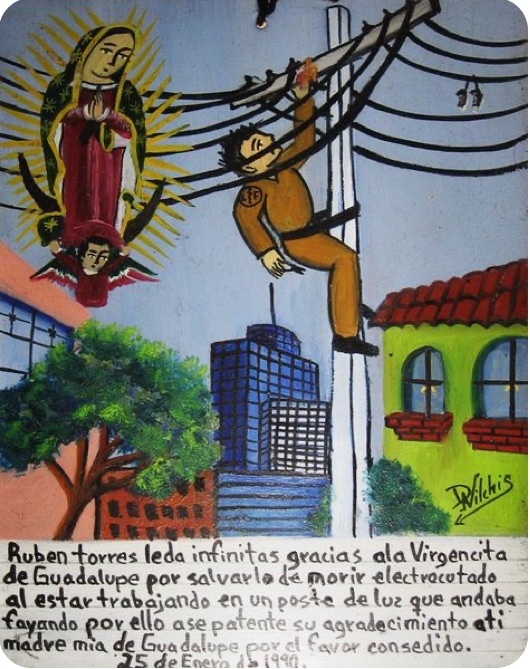 Vilchis
Ruben torres leda infinitas gracias ala Virgencita
de Guadalupe por salvarlo de morir electrocutado
al estar trabajando en un poste de luz que andaba
fayando por ello ase patente su agradecimiento ati
madre mia de Guadalupe por el favor consedido.
25 de Enero de